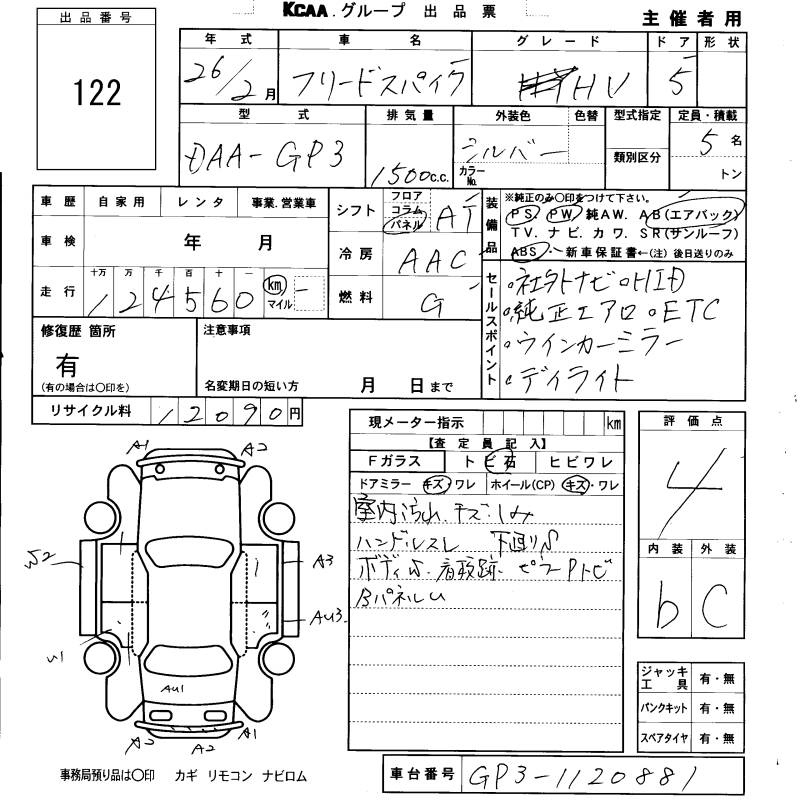 KCAA.グループ 出品票
主催者用
出品番号
122
年式 車名 グレード ドア 形状
26/2月 フリードスパイク HV 5
型式 排気量 外装色 色替 型式指定 定員・積載
DAA-GP3 1500c.c. シルバー 5名
カラーNo. 類別区分 トン
車歴 自家用 レンタ 事業.営業車
車検 年 月
十万 万 千 百 十 一
走行 124560 km マイル
シフト フロア コラム パネル AT
冷房 AAC
燃料 G
装備品
※純正のみ〇印をつけて下さい。
PS PW 純AW. AB(エアバック)
TV. ナビ. カワ. SR(サンルーフ)
ABS・新車保証書←(注)後日送りのみ
セールスポイント
・社外ナビ・HID
・純正エアロ・ETC
・ウインカーミラー
・デイライト
修復歴 箇所
有
(有の場合は〇印を)
注意事項
名変期日の短い方 月 日まで
リサイクル料 12090円
現メーター指示 km
【査定員記入】
Fガラス トビ石 ヒビワレ
ドアミラー キズ・ワレ ホイール(CP) キズ・ワレ
室内汚れ.キズ.しみ
ハンドルスレ 下回りS
ボディS.看取跡. ピラーPトビ
BパネルU
評価点
4
内装 外装
b C
A1 A2
W2 A3
AU3
AU1
A2 A2 A1
ジャッキ工具 有・無
パンクキット 有・無
スペアタイヤ 有・無
事務局預り品は〇印 カギ リモコン ナビロム
車台番号 GP3-1120881